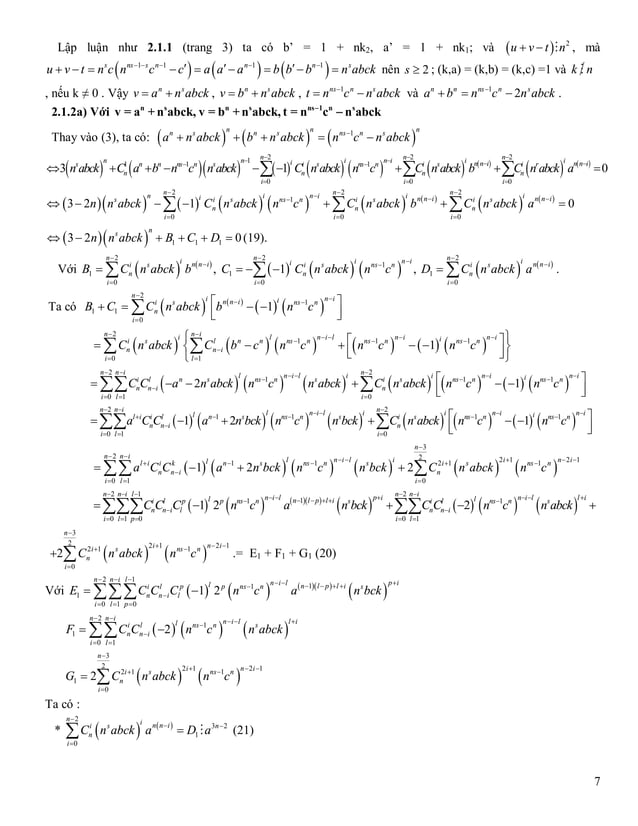 Lập luận như 2.1.1 (trang 3) ta có b’ = 1 + nk₂, a’ = 1 + nk₁; và (u + v − t)⋮n², mà
u + v − t = nˢc(nⁿˢ⁻¹⁻ˢcⁿ⁻¹ − c′) = a(a′ − aⁿ⁻¹) = b(b′ − bⁿ⁻¹) = nˢabck nên s ≥ 2 ; (k,a) = (k,b) = (k,c) =1 và k ⋮̸ n
, nếu k ≠ 0 . Vậy v = aⁿ + nˢabck , v = bⁿ + nˢabck , t = nⁿˢ⁻¹cⁿ − nˢabck và aⁿ + bⁿ = nⁿˢ⁻¹cⁿ − 2nˢabck .
2.1.2a) Với v = aⁿ + nˢabck, v = bⁿ + nˢabck, t = nⁿˢ⁻¹cⁿ − nˢabck
Thay vào (3), ta có: (aⁿ + nˢabck)ⁿ + (bⁿ + nˢabck)ⁿ = (nⁿˢ⁻¹cⁿ − nˢabck)ⁿ
⇔ 3(nˢabck)ⁿ + C_n^1(aⁿ + bⁿ − n^{ns−1}cⁿ)(nˢabck)^{n−1} − ∑_{i=0}^{n−2}(−1)^i C_n^i (nˢabck)^i (n^{ns−1}cⁿ)^{n−i} + ∑_{i=0}^{n−2} C_n^i (nˢabck)^i b^{n(n−i)} + ∑_{i=0}^{n−2} C_n^i (nˢabck)^i a^{n(n−i)} = 0
⇔ (3 − 2n)(nˢabck)ⁿ − ∑_{i=0}^{n−2}(−1)^i C_n^i (nˢabck)^i (n^{ns−1}cⁿ)^{n−i} + ∑_{i=0}^{n−2} C_n^i (nˢabck)^i b^{n(n−i)} + ∑_{i=0}^{n−2} C_n^i (nˢabck)^i a^{n(n−i)} = 0
⇔ (3 − 2n)(nˢabck)ⁿ + B₁ + C₁ + D₁ = 0 (19).
Với B₁ = ∑_{i=0}^{n−2} C_n^i (nˢabck)^i b^{n(n−i)} , C₁ = −∑_{i=0}^{n−2}(−1)^i C_n^i (nˢabck)^i (n^{ns−1}cⁿ)^{n−i} , D₁ = ∑_{i=0}^{n−2} C_n^i (nˢabck)^i a^{n(n−i)} .
Ta có B₁ + C₁ = ∑_{i=0}^{n−2} C_n^i (nˢabck)^i [b^{n(n−i)} − (−1)^i (n^{ns−1}cⁿ)^{n−i}]
= ∑_{i=0}^{n−2} C_n^i (nˢabck)^i {∑_{l=1}^{n−i} C_{n−i}^l (bⁿ − cⁿ n^{ns−1})^l (n^{ns−1}cⁿ)^{n−i−l} + [(n^{ns−1}cⁿ)^{n−i} − (−1)^i (n^{ns−1}cⁿ)^{n−i}]}
= ∑_{i=0}^{n−2}∑_{l=1}^{n−i} C_n^i C_{n−i}^l (−aⁿ − 2nˢabck)^l (n^{ns−1}cⁿ)^{n−i−l} (nˢabck)^i + ∑_{i=0}^{n−2} C_n^i (nˢabck)^i [(n^{ns−1}cⁿ)^{n−i} − (−1)^i (n^{ns−1}cⁿ)^{n−i}]
= ∑_{i=0}^{n−2}∑_{l=1}^{n−i} a^{l+i} C_n^i C_{n−i}^l (−1)^l (a^{n−1} + 2nˢbck)^l (n^{ns−1}cⁿ)^{n−i−l} (nˢbck)^i + ∑_{i=0}^{n−2} C_n^i (nˢabck)^i [(n^{ns−1}cⁿ)^{n−i} − (−1)^i (n^{ns−1}cⁿ)^{n−i}]
= ∑_{i=0}^{n−2}∑_{l=1}^{n−i} a^{l+i} C_n^i C_{n−i}^k (−1)^l (a^{n−1} + 2nˢbck)^l (n^{ns−1}cⁿ)^{n−i−l} (nˢbck)^i + 2∑_{i=0}^{(n−3)/2} C_n^{2i+1} (nˢabck)^{2i+1} (n^{ns−1}cⁿ)^{n−2i−1}
= ∑_{i=0}^{n−2}∑_{l=1}^{n−i}∑_{p=0}^{l−1} C_n^i C_{n−i}^l C_l^p (−1)^l 2^p (n^{ns−1}cⁿ)^{n−i−l} a^{(n−1)(l−p)+l+i} (nˢbck)^{p+i} + ∑_{i=0}^{n−2}∑_{l=1}^{n−i} C_n^i C_{n−i}^l (−2)^l (n^{ns−1}cⁿ)^{n−i−l} (nˢabck)^{l+i} +
+2∑_{i=0}^{(n−3)/2} C_n^{2i+1} (nˢabck)^{2i+1} (n^{ns−1}cⁿ)^{n−2i−1} .= E₁ + F₁ + G₁ (20)
Với E₁ = ∑_{i=0}^{n−2}∑_{l=1}^{n−i}∑_{p=0}^{l−1} C_n^i C_{n−i}^l C_l^p (−1)^l 2^p (n^{ns−1}cⁿ)^{n−i−l} a^{(n−1)(l−p)+l+i} (nˢbck)^{p+i}
F₁ = ∑_{i=0}^{n−2}∑_{l=1}^{n−i} C_n^i C_{n−i}^l (−2)^l (n^{ns−1}cⁿ)^{n−i−l} (nˢabck)^{l+i}
G₁ = 2∑_{i=0}^{(n−3)/2} C_n^{2i+1} (nˢabck)^{2i+1} (n^{ns−1}cⁿ)^{n−2i−1}
Ta có :
* ∑_{i=0}^{n−2} C_n^i (nˢabck)^i a^{n(n−i)} = D₁⋮a^{3n−2} (21)
7